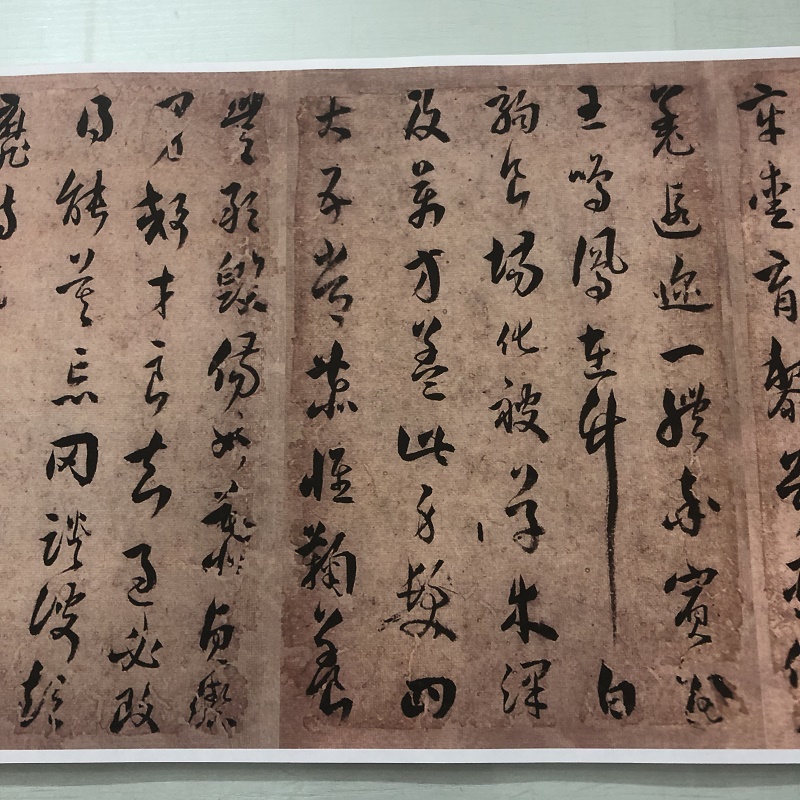 章愛育黎首臣伏
羌遐邇一體率賓歸
王鳴鳳在竹白
駒食場化被草木賴
及萬方蓋此身髮四
大五常恭惟鞠養
豈敢毀傷女慕貞潔
男效才良知過必改
得能莫忘罔談彼短
靡恃